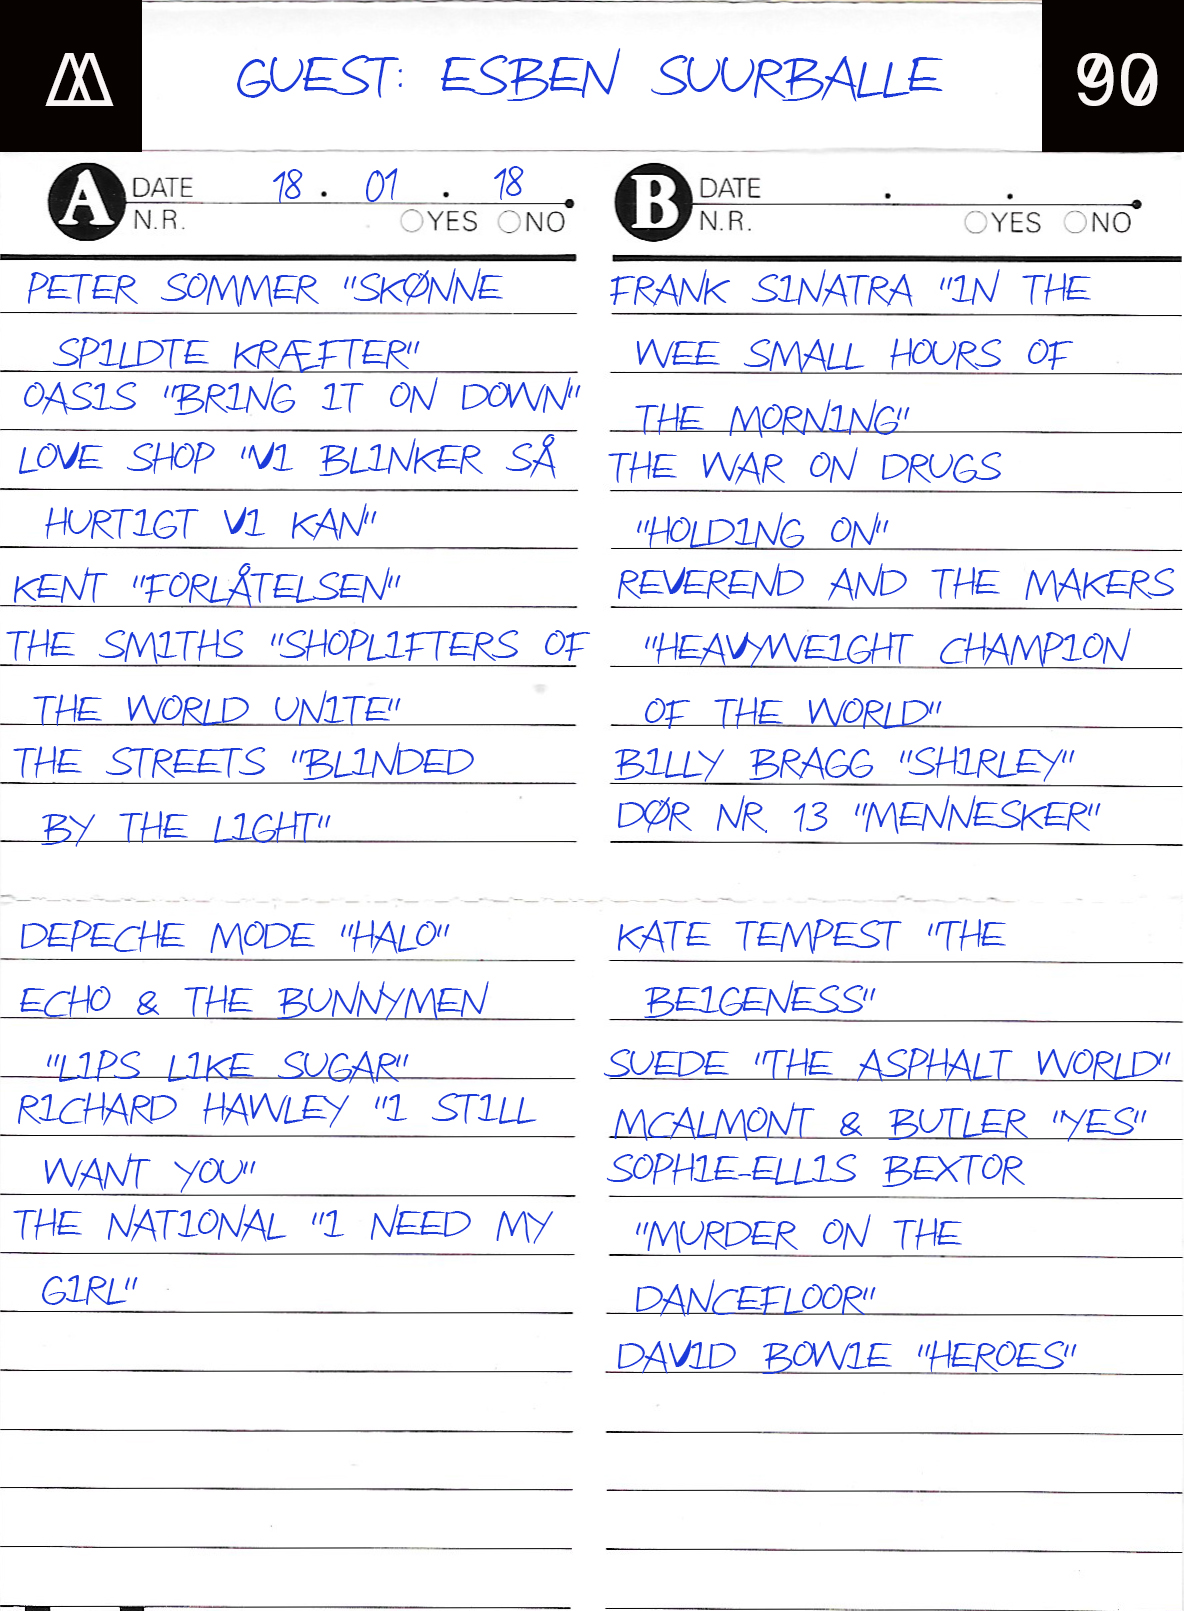 M
GUEST: ESBEN SUURBALLE
90
A DATE 18 . 01 . 18
N.R. YES NO
PETER SOMMER "SKØNNE
SPILDTE KRÆFTER"
OASIS "BRING IT ON DOWN"
LOVE SHOP "VI BLINKER SÅ
HURTIGT VI KAN"
KENT "FORLÅTELSEN"
THE SMITHS "SHOPLIFTERS OF
THE WORLD UNITE"
THE STREETS "BLINDED
BY THE LIGHT"
DEPECHE MODE "HALO"
ECHO & THE BUNNYMEN
"LIPS LIKE SUGAR"
RICHARD HAWLEY "I STILL
WANT YOU"
THE NATIONAL "I NEED MY
GIRL"
B DATE . .
N.R. YES NO
FRANK SINATRA "IN THE
WEE SMALL HOURS OF
THE MORNING"
THE WAR ON DRUGS
"HOLDING ON"
REVEREND AND THE MAKERS
"HEAVYWEIGHT CHAMPION
OF THE WORLD"
BILLY BRAGG "SHIRLEY"
DØR NR. 13 "MENNESKER"
KATE TEMPEST "THE
BEIGENESS"
SUEDE "THE ASPHALT WORLD"
MCALMONT & BUTLER "YES"
SOPHIE-ELLIS BEXTOR
"MURDER ON THE
DANCEFLOOR"
DAVID BOWIE "HEROES"